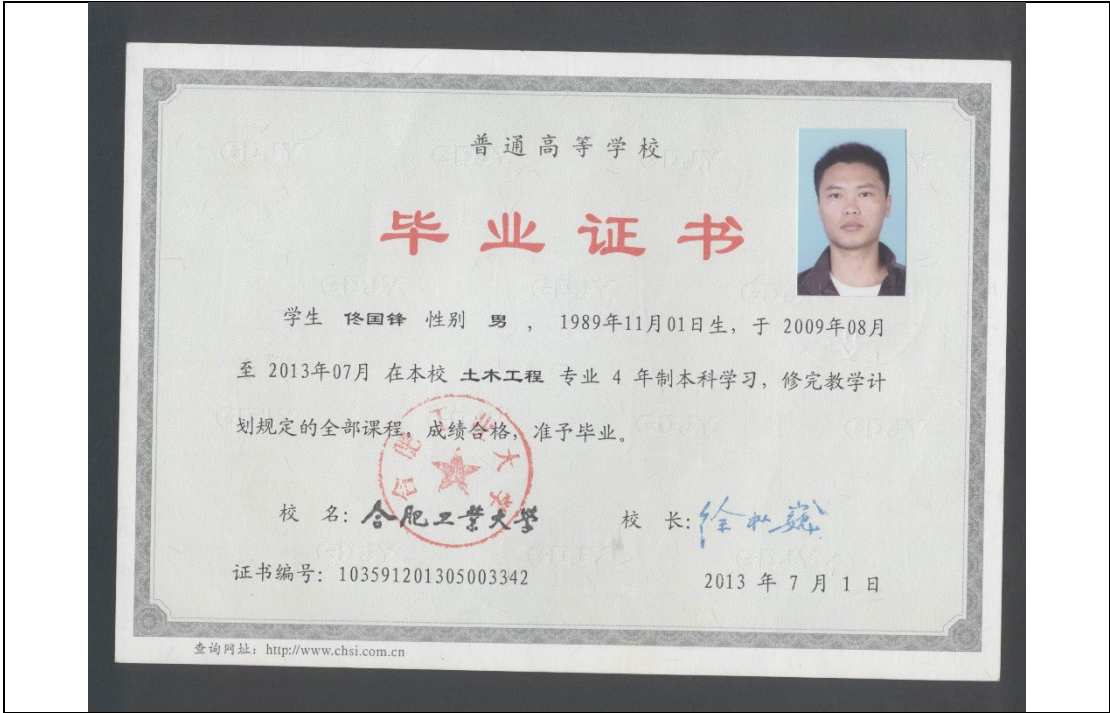 普通高等学校
毕业证书
学生 佟国锋 性别 男 ，1989年11月01日生，于 2009年08月
至 2013年07月 在本校 土木工程 专业 4 年制本科学习，修完教学计
划规定的全部课程，成绩合格，准予毕业。
合肥工业大学
校 名：合肥工业大学
校 长：
证书编号：103591201305003342
2013 年 7 月 1 日
查询网址：http://www.chsi.com.cn